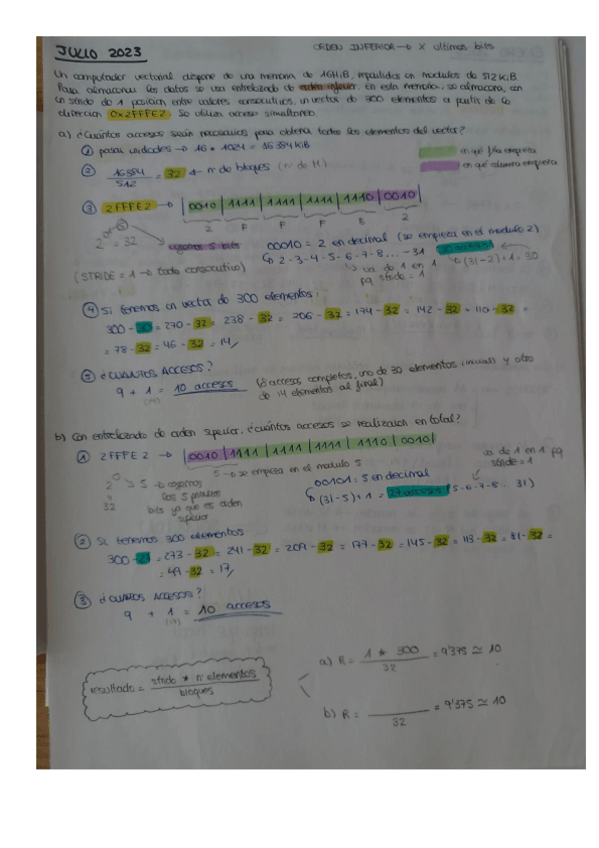 JULIO 2023
ORDEN INFERIOR → X últimos bits
Un computador vectorial dispone de una memoria de 16MiB, repartidos en modulos de 512 KiB.
Para almacenar los datos se usa entrelazado de orden inferior. En esta memoria, se almacena, con
un stride de 1 posicion entre valores consecutivos, un vector de 300 elementos a partir de la
direccion 0x2FFFE2. Se utiliza acceso simultaneo.
a) ¿Cuántos accesos serán necesarios para obtener todos los elementos del vector?
① pasar unidades → 16 * 1024 = 16384 KiB
en qué fila empieza
en qué columna empieza
② 16384 / 512 = 32 ← nº de bloques (nº de M)
③ 2FFFE2 → |0010|1111|1111|1111|1110|0010|
2 F F F E 2
2^5 = 32
cogemos 5 bits
00010 = 2 en decimal (se empieza en el modulo 2)
↳ 2-3-4-5-6-7-8... -31 30 accesos
(STRIDE = 1 → todo consecutivo)
↳ va de 1 en 1 pq stride = 1
↳ (31-2)+1 = 30
④ Si tenemos un vector de 300 elementos:
300 - 30 = 270 - 32 = 238 - 32 = 206 - 32 = 174 - 32 = 142 - 32 = 110 - 32 =
= 78 - 32 = 46 - 32 = 14
⑤ ¿CUÁNTOS ACCESOS?
9 + 1 = 10 accesos
(14)
accesos completos, uno de 30 elementos (inicial) y otro
de 14 elementos al final)
b) Con entrelazado de orden superior, ¿cuántos accesos se realizarian en total?
① 2FFFE2 → |0010|1111|1111|1111|1110|0010|
va de 1 en 1 pq
stride = 1
5 → se empieza en el modulo 5
2^5 → 5 → cogemos
32
los 5 primeros
bits ya que es orden
superior
00101 = 5 en decimal
↳ (31-5)+1 = 27 accesos (5-6-7-8... 31)
② Si tenemos 300 elementos
300 - 27 = 273 - 32 = 241 - 32 = 209 - 32 = 177 - 32 = 145 - 32 = 113 - 32 = 81 - 32 =
= 49 - 32 = 17
③ ¿CUÁNTOS ACCESOS?
9 + 1 = 10 accesos
(17)
resultado = stride * nº elementos / bloques
a) R = 1 * 300 / 32 = 9'375 ≃ 10
b) R = / 32 = 9'375 ≃ 10